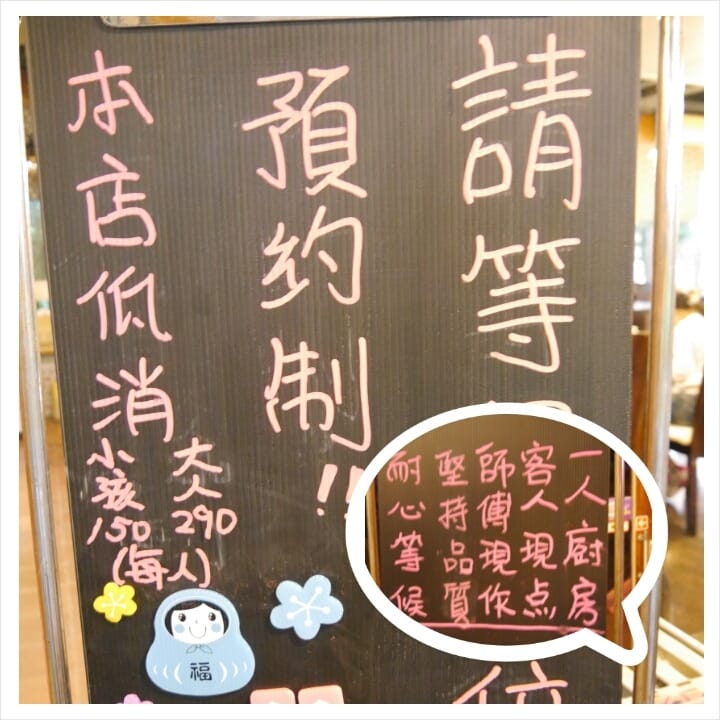 請等
位
預約制!!
本店低消
大人290
小孩150
(每人)
福
一人廚房
客人現点
師傅現作
堅持品質
耐心等候